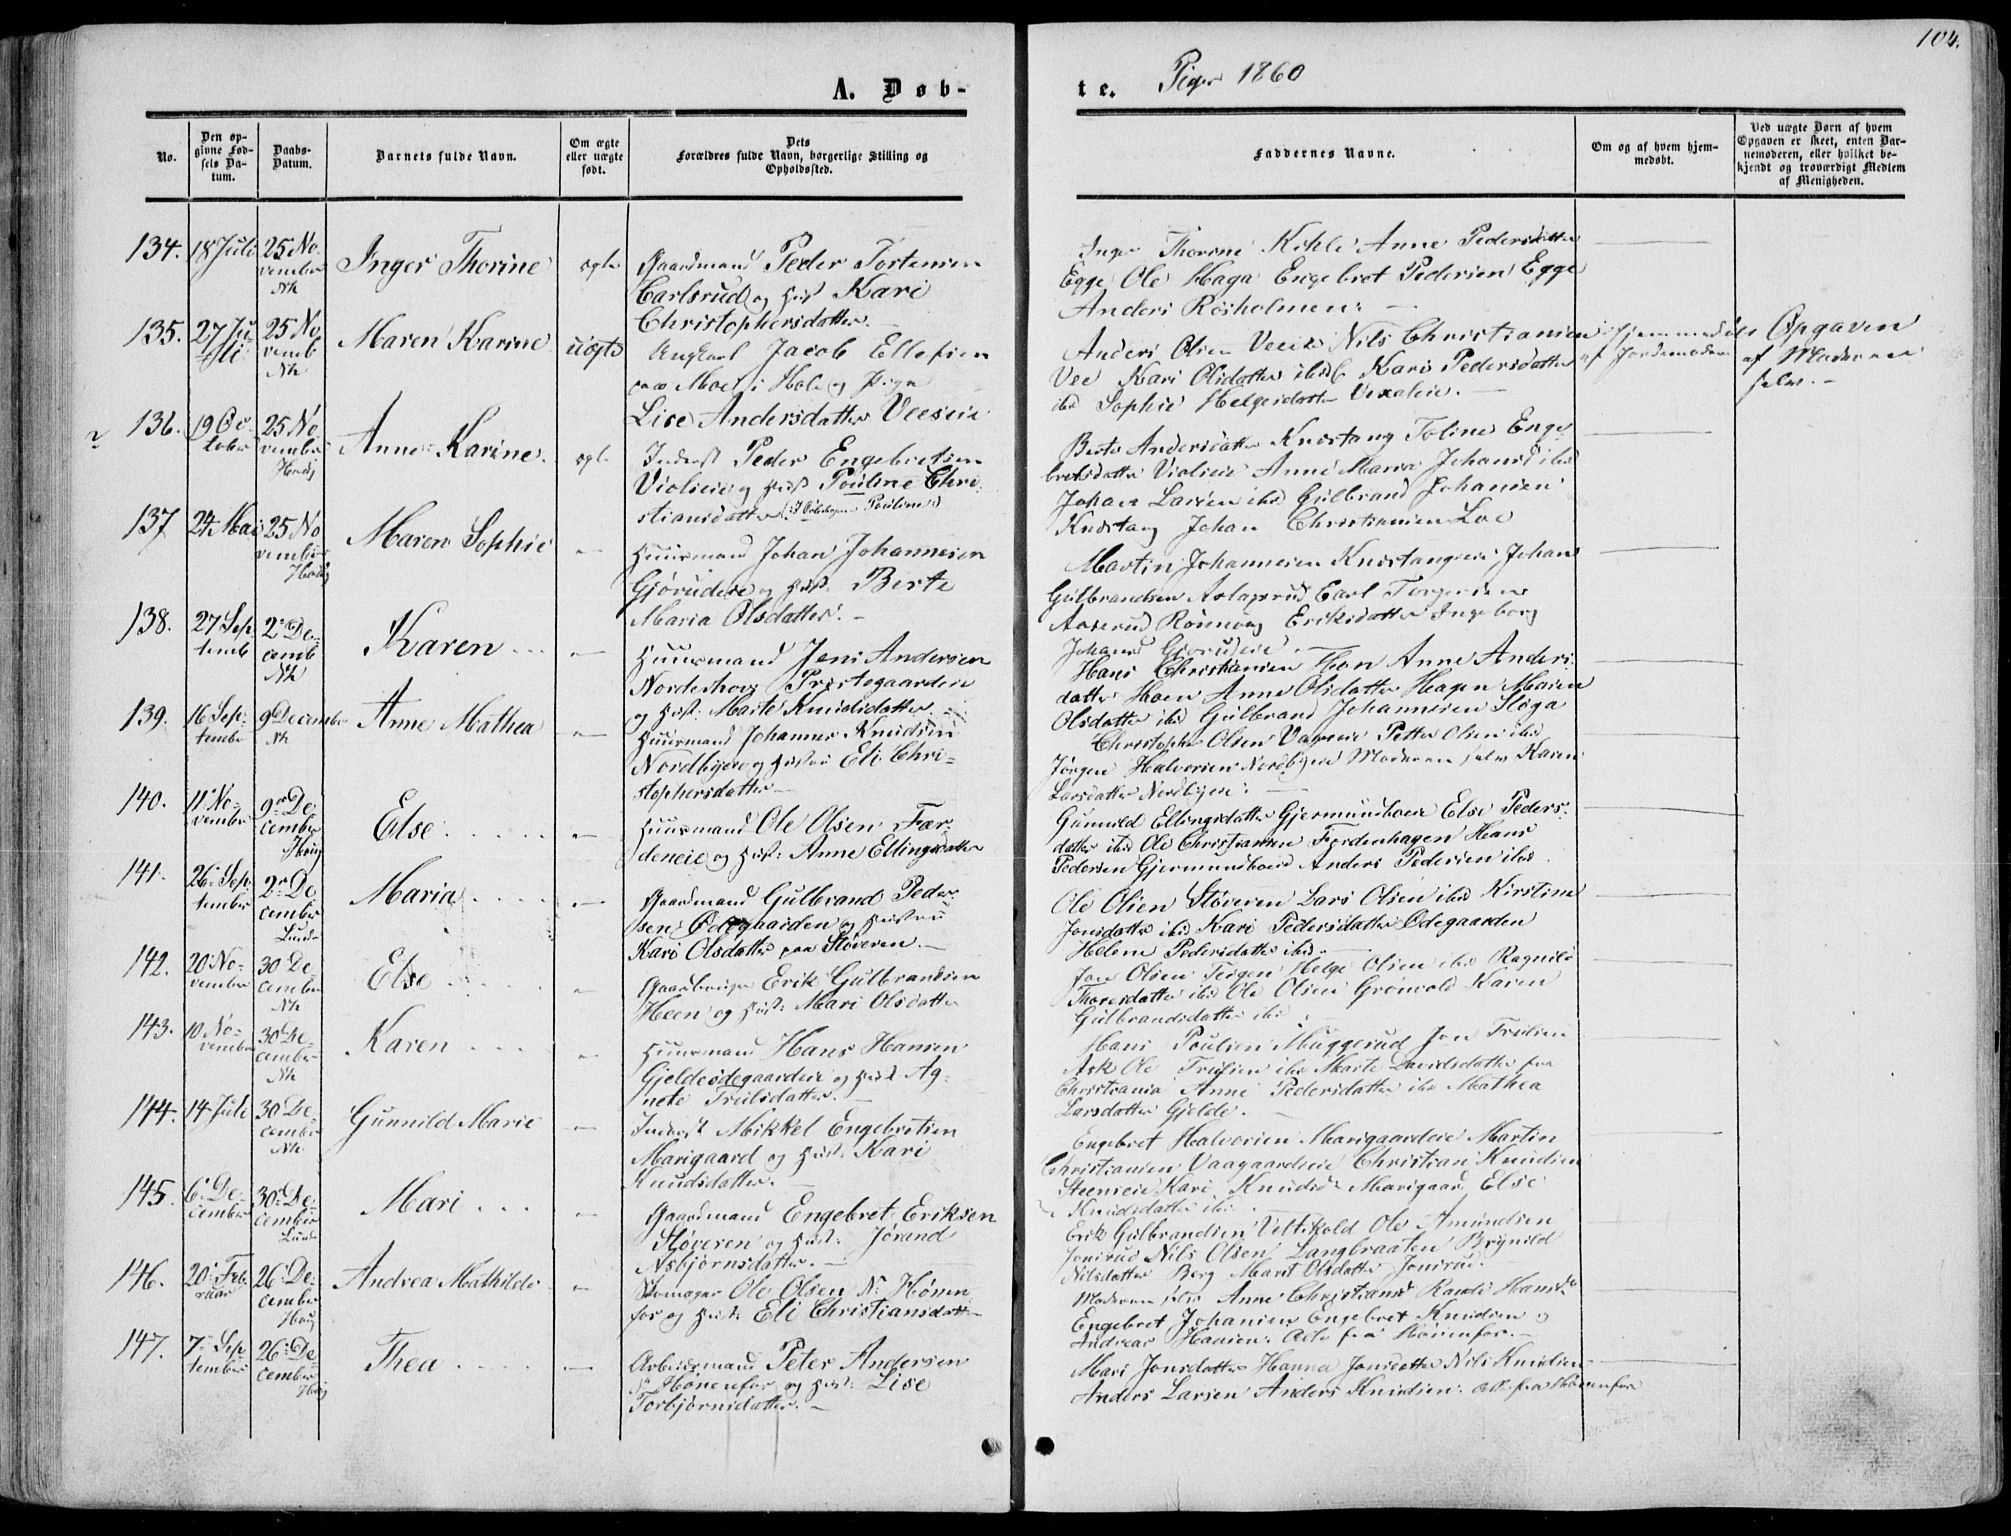 104.
A. Døb-
te. Piger 1860
No.
Den op-
givne Fød-
sels Da-
tum.
Daabs-
Datum.
Barnets fulde Navn.
Om ægte
eller uægte
født.
Dets
Forældres fulde Navn, borgerlige Stilling og
Opholdssted.
Faddernes Navne.
Om og af hvem hjem-
medøbt.
Ved uægte Børn af hvem
Opgaven er skeet, enten Bar-
nemoderen, eller hvilket be-
kjendt og troværdigt Medlem
af Menigheden.
134. 18 Juli 25 No-
vember
Nh
Inger Thorine
ægte
Gaardmand Peder Tostensen
Carlsrud og Hust Kari
Christophersdatter.
Inger Thorine Kihle Anne Pedersdatter
Egge Ole Haga Engebret Pedersen Egge
Anders Rösholmen.
135. 27 Ju-
li
25 No
vemb
Nh
Maren Karine
uægte
Ungkarl Jacob Ellefsen
paa Moe i Hole og Pige
Lise Andersdatter Veeseie
Anders Olsen Veeie Nils Christiansen
Vee Kari Olsdatter ibid Kari Pedersdatter
ibd Sophie Helgesdatter
hjemmedöbt
af Jordemoderen
Opgaven
af Moderen
selv.
136. 19 Oc-
tober
25 No
vember
Houg
Anne Karine.
ægte
Inderst Peder Engebretsen
Violieie og Hust Pouline Chri-
stiansdatter
Berte Andersdatter Knestang Toline Enge-
bretsdatter Violieie Anne Maria Johansd ibd
Johan Larsen ibd Gulbrand Johansen
Knestang Johan Christiansen Loe
137 24 Mai 25 No
vember
Houg
Maren Sophie
Huusmand Johan Johannesen
Gjörudeie og Hust. Berte
Maria Olsdatter.
Martin Johannesen Knestangeie Johan
Gulbrandsen Aslagsrud Carl Torgersen
Aaserud Rönnoug Eriksdatter Ingeborg
Johansd Gjörudeie
138. 27 Sep-
temb
2 De-
cemb
Nh
Karen
Huusmand Jens Andersen
Norderhovs Præstegaardeie
og Hust. Marte Knudsdatter.
Hans Christiansen Hon Anne Anders-
datter Hoen Anne Olsdatter Hagen Maren
Olsdatter ibd Gulbrand Johannesen Sløga
139. 16 Sep-
tembr
9 December
Nh
Anne Mathea
Huusmand Johannes Knudsen
Nordbyeie og Hustru Eli Chri-
stophersdatter
Christopher Olsen Petter Olsen ibd
Jörgen Halvorsen Nordbyeie Moderen selv Karen
Larsdatter Nordbyeie.
140. 11 No-
vember
9 De-
cember
Houg
Else
Huusmand Ole Olsen Fær-
deneie og Hust: Anne Ellingsdatter
Gunnild Ellingsdatter Gjermundboeie Else Peders-
datter ibd Ole Christiansen Færdenhagen Hans
Pedersen Gjermundboeie Anders Pedersen ibd.
141. 26 Sep-
tember
2 De
cember
Lunde
Maria
Gaardmand Gulbrand Peder-
sen Ödegaarden og Hustru
Kari Olsdatter paa Støveren.
Ole Olsen Støveren Lars Olsen ibd Kirstine
Jonsdatter ibd Kari Pedersdatter Ödegaarden
Helene Pedersdatter ibd.
142. 20 No-
vember
30 De-
cember
Nh
Else
Gaardbruger Erik Gulbrandsen
Heen og Hust: Mari Olsdatter
Jon Olsen Helge Olsen ibd Ragnild
Thoresdatter ibd Ole Olsen Grönvold Karen
Gulbrandsdatter ibd
143. 10 No-
vember
30 De-
cember
Nh
Karen
Huusmand Hans Hansen
Gjeldeødegaardeie og Hust Ag-
nete Truilsdatter.
Hans Poulsen Muggerud Jon Trulsen
Ask Ole Trulsen ibd Marte Davidsdatter fra
Christiania Anne Pedersdatter ibd Mathea
Larsdatter Gjelde.
144. 14 Juli 30 De-
cember
Nh
Gunnild Marie
Inderst Mikkel Engebretsen
Marigaard og Hust. Kari
Knudsdatter.
Engebret Halvorsen Marigaardeie Martin
Christiansen Vaagaardseie Christian Knudsen
Steenseie Kari Knudsd Marigaard Else
Knudsdatter ibd
145. 6 De-
cember
30 De-
cember
Lunde
Mari
Gaardmand Engebret Eriksen
Støveren og Hust: Jørand
Asbjørnsdatter.
Erik Gulbrandsen Veltikold Ole Amundsen
Jonsrud Nils Olsen Langbraaten Brynild
Nilsdatter Berg Marit Olsdatter Jonsrud.
146. 20 Feb-
ruar
26 De-
cember
Houg
Andrea Mathilde
Skomager Ole Olsen N: Hönen-
fos og Hust: Eli Christiansdatter
Moderen selv Anne Christiansd Randi Hansd
Engebret Johansen Engebret Knudsen og
Andreas Hansen. Alle fra Hönenfos.
147. 7 Sep-
tember
26 De-
cember
Houg
Thea
Arbeidsmand Peter Andersen
Hönenfos og Hust: Lise
Torbjörnsdatter.
Mari Jonsdatter Hanna Jonsdatter Nils Knudsen
Anders Larsen Anders Knudsen. alle fra Hönenfos